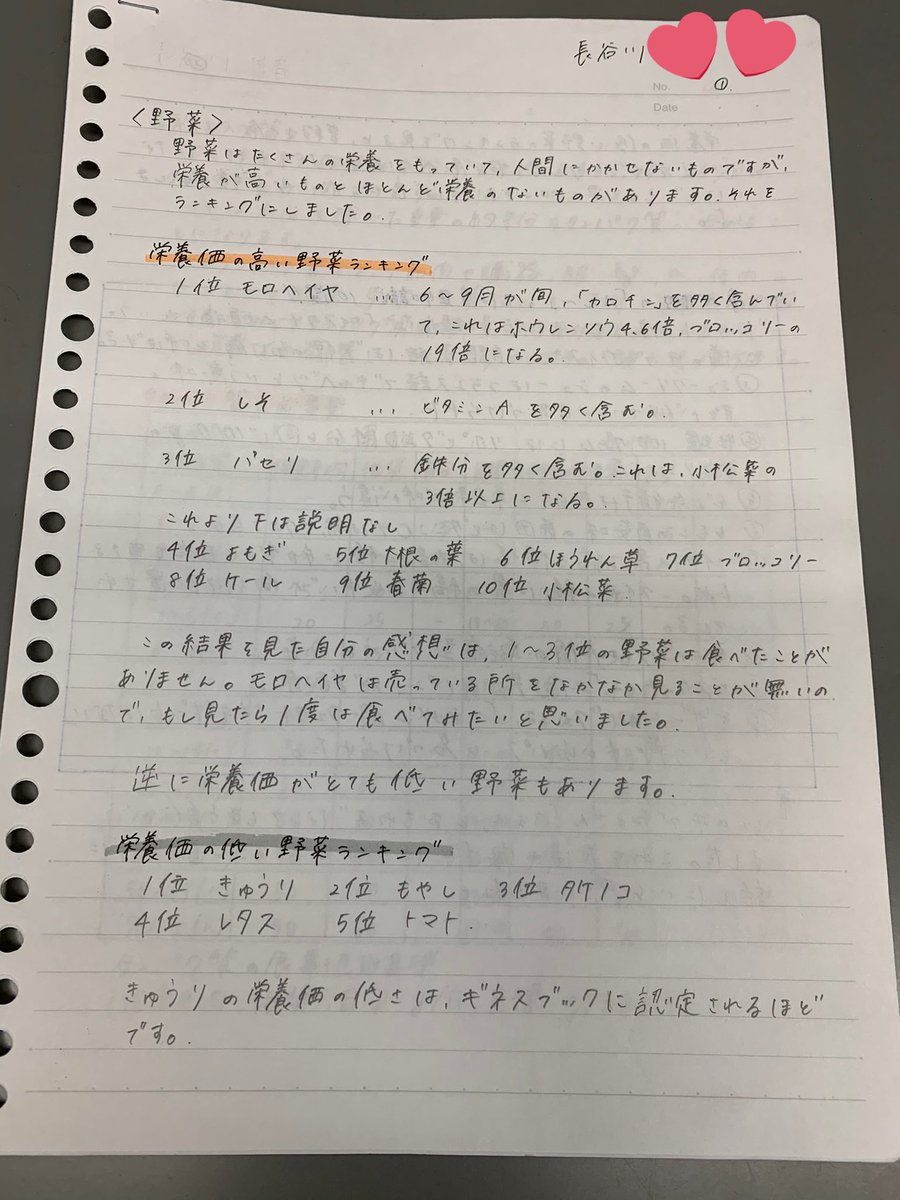 長谷川
No. ①.
Date
〈野菜〉
野菜はたくさんの栄養をもっていて、人間にかかせないものですが、
栄養が高いものとほとんど栄養のないものがあります。それを
ランキングにしました。
栄養価の高い野菜ランキング
1位 モロヘイヤ … 6〜9月が旬、「カロチン」を多く含んでい
て、これはホウレンソウ4.6倍、ブロッコリーの
19倍になる。
2位 しそ … ビタミンAを多く含む。
3位 パセリ … 鉄分を多く含む。これは、小松菜の
3倍以上になる。
これより下は説明なし
4位 よもぎ 5位 大根の葉 6位 ほうれん草 7位 ブロッコリー
8位 ケール 9位 春菊 10位 小松菜.
この結果を見た自分の感想は、1〜3位の野菜は食べたことが
ありません。モロヘイヤは売っている所をなかなか見ることが無いの
で、もし見たら1度は食べてみたいと思いました。
逆に栄養価がとても低い野菜もあります。
栄養価の低い野菜ランキング
1位 きゅうり 2位 もやし 3位 タケノコ
4位 レタス 5位 トマト.
きゅうりの栄養価の低さは、ギネスブックに認定されるほど
です。